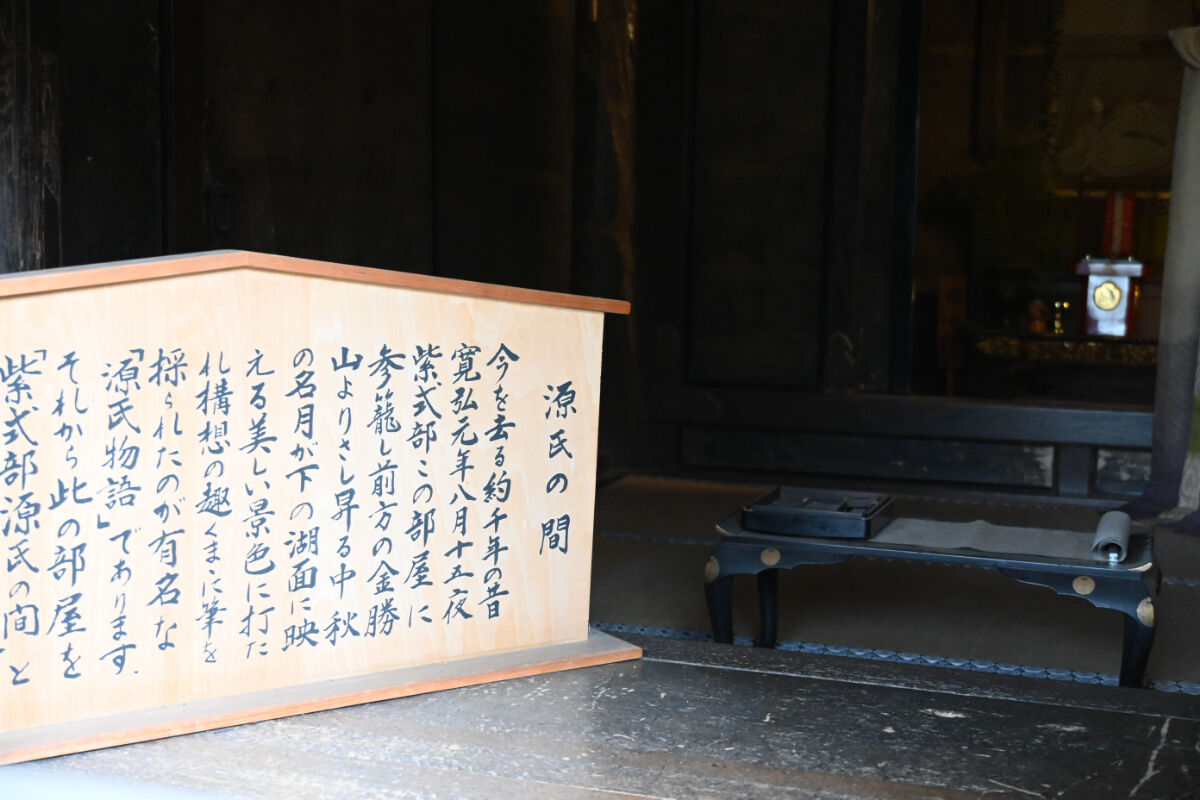 源氏の間
今を去る約千年の昔
寛弘元年八月十五夜
紫式部この部屋に
参籠し前方の金勝
山よりさし昇る中秋
の名月が下の湖面に映
える美しい景色に打た
れ構想の趣くまゝに筆を
採られたのが有名な
「源氏物語」であります.
それから此の部屋を
「紫式部源氏の間」と